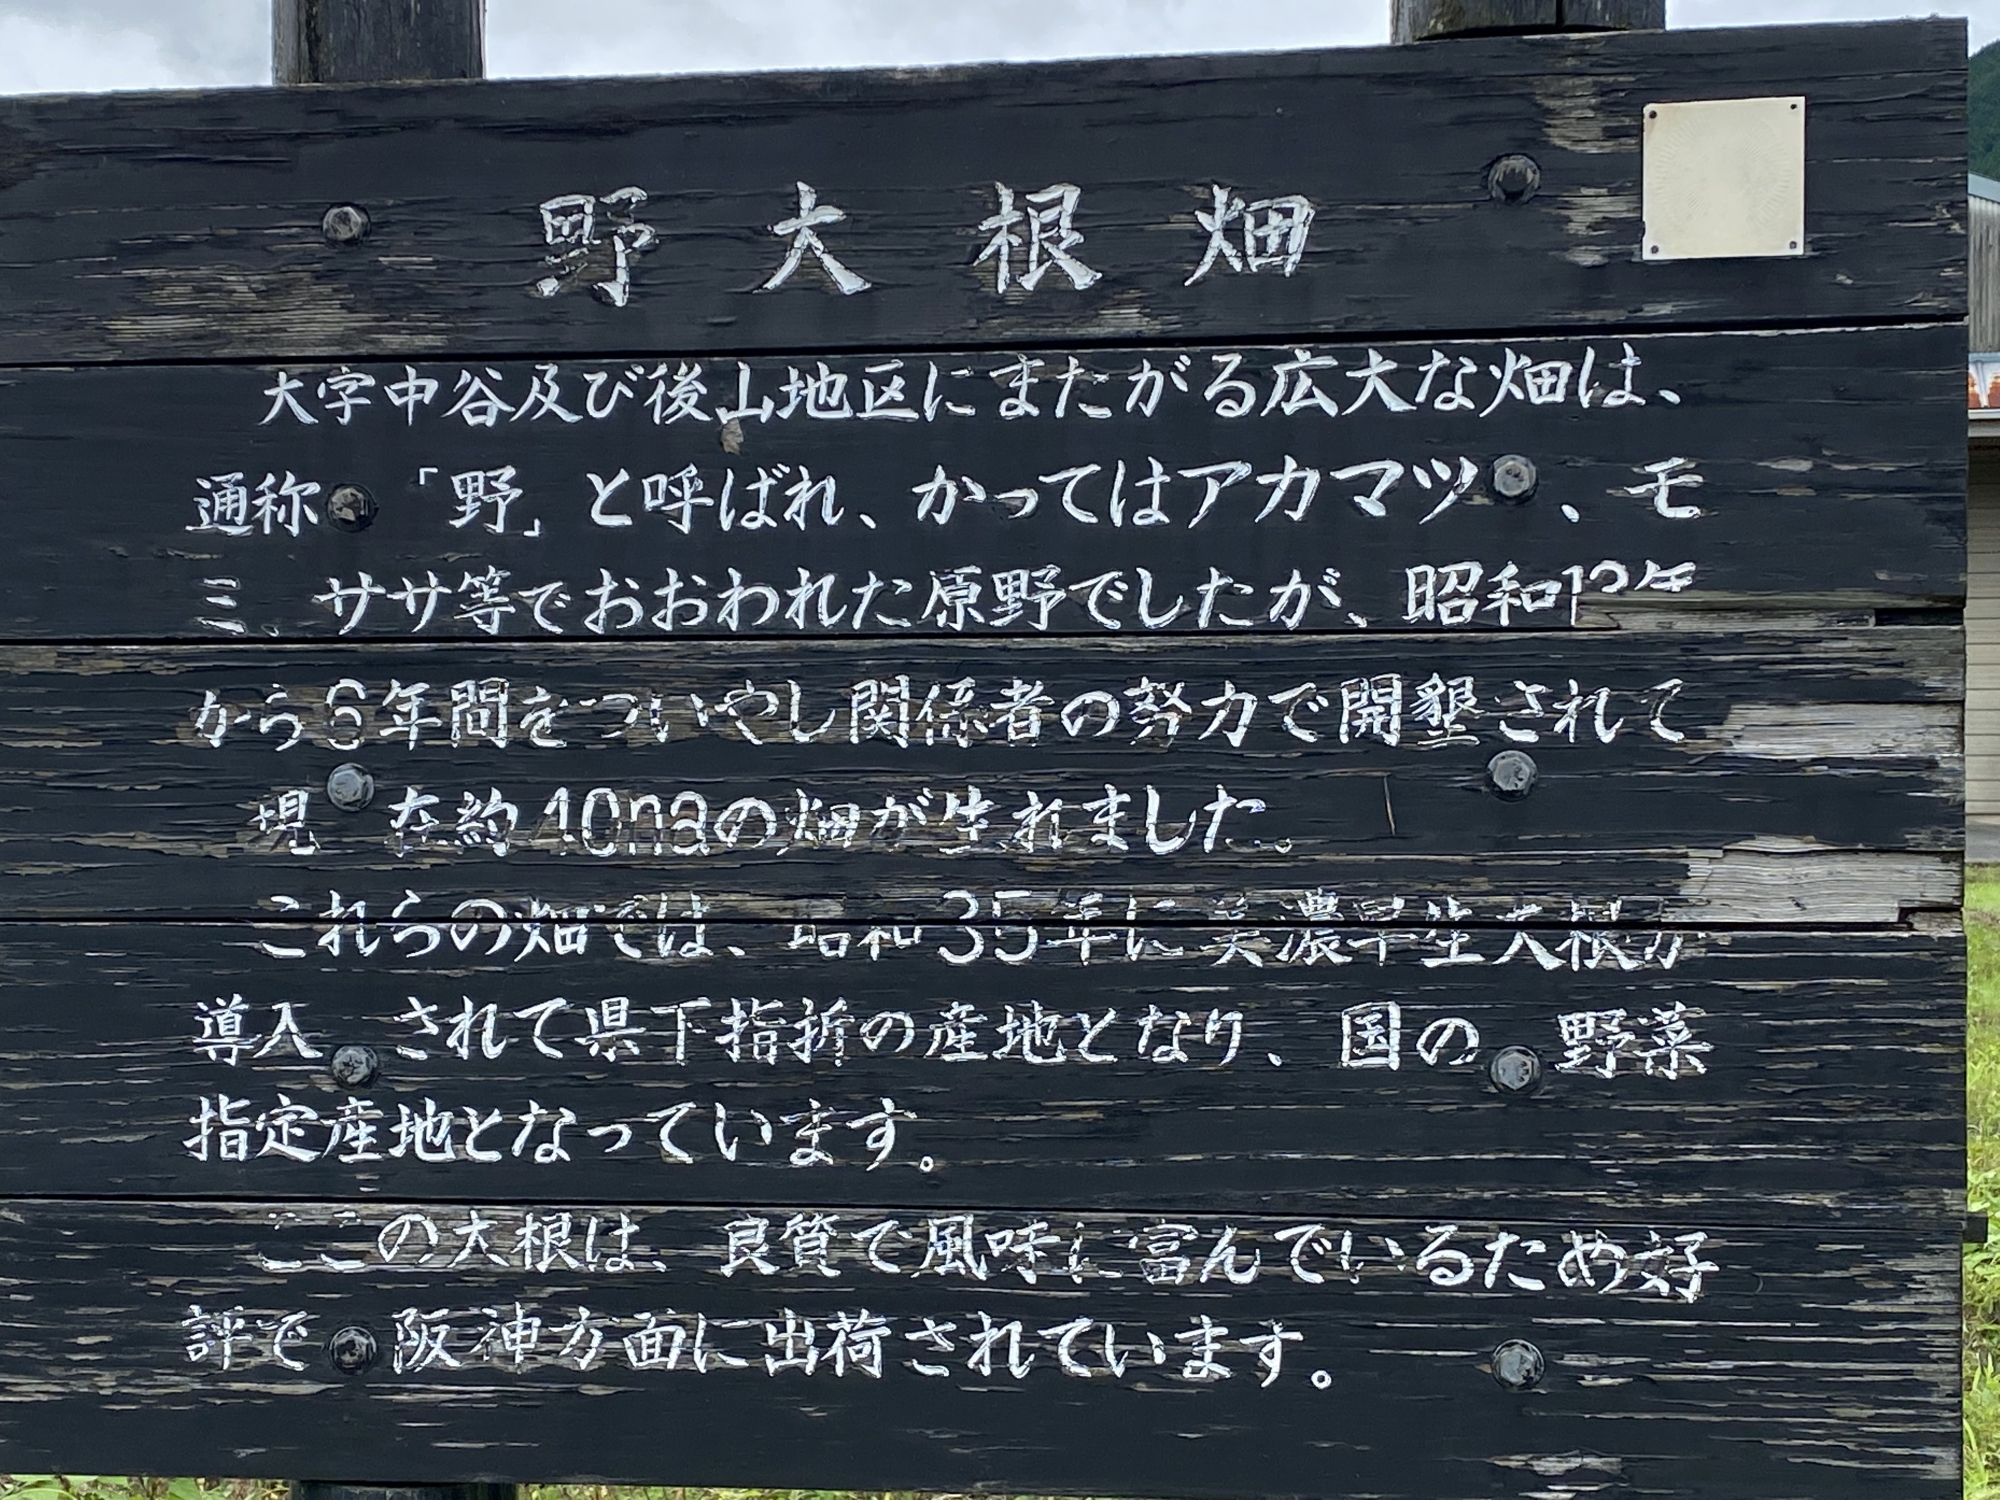 野大根畑
大字中谷及び後山地区にまたがる広大な畑は、
通称「野」と呼ばれ、かってはアカマツ、モ
ミ、ササ等でおおわれた原野でしたが、昭和
から6年間をついやし関係者の努力で開墾されて
現在約10haの畑が生れました。
これらの畑では、昭和35年に美濃早生大根が
導入されて県下指折の産地となり、国の野菜
指定産地となっています。
ここの大根は、良質で風味に富んでいるため好
評で阪神方面に出荷されています。